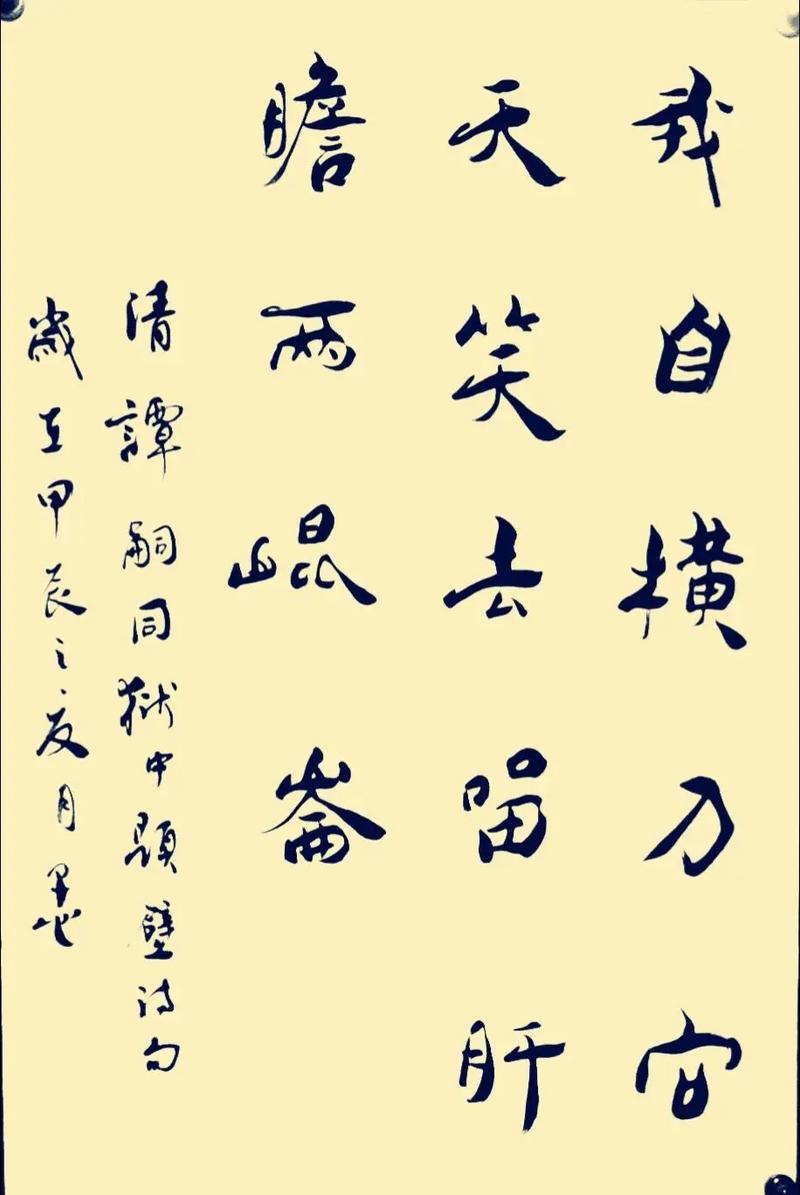 我自橫刀向
天笑去留肝
膽兩崐崙
清譚嗣同獄中題壁诗句
歲在甲辰之夏月